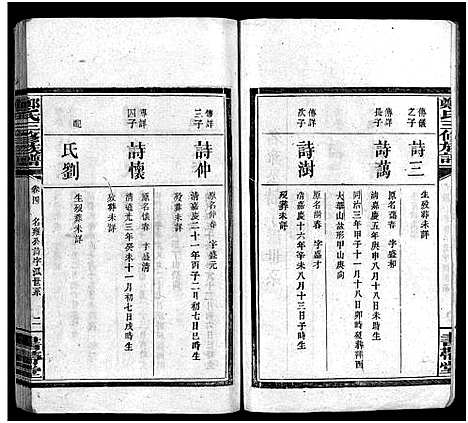 鄭氏三修族譜
書帶堂
傳儀
之子
詩三
生歿葬未詳
傳詳
長子
詩萬
原名萬春 字盛和
清嘉慶五年庚申八月十八日時生
同治三年甲子十一月十八日卯時歿葬拜西
大華山扶形甲山庚向
傳詳
次子
詩澍
原名澍春 字盛才
清嘉慶十六年辛未八月十三日子時生
歿葬未詳
傳詳
三子
詩仲
原名仲春 字盛元
清嘉慶二十一年丙子二月初七日巳時生
歿葬未詳
專詳
四子
詩懷
原名懷春 字盛清
清道光三年癸未十一月初七日戌時生
歿葬未詳
配
劉氏
生歿葬未詳
鄭氏三修族譜
卷四
書帶堂